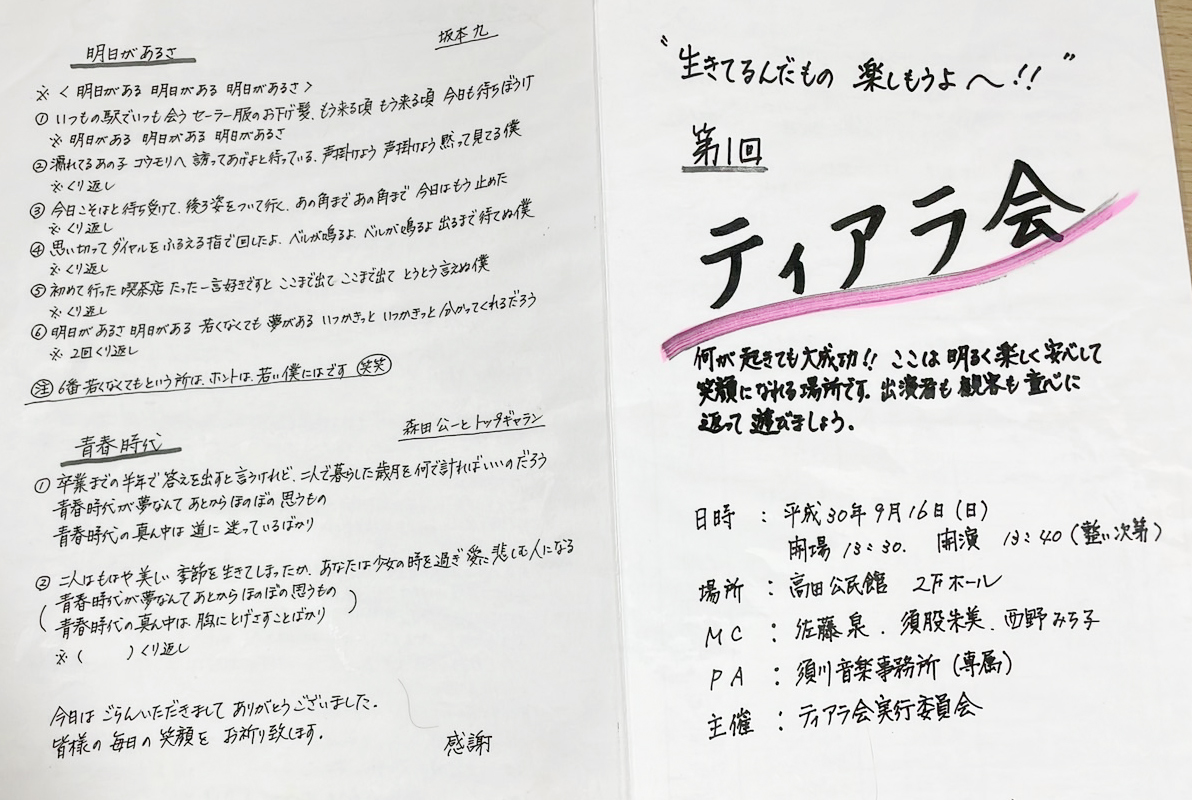 明日があるさ
坂本九
※〈明日がある 明日がある 明日があるさ〉
① いつもの駅でいつも会う セーラー服のお下げ髪、もう来る頃 もう来る頃 今日も待ちぼうけ
※ 明日がある 明日がある 明日があるさ
② 濡れてるあの子 コウモリへ 誘ってあげよと待っている、声掛けよう 声掛けよう 黙って見てる僕
※くり返し
③ 今日こそはと待ち受けて、後ろ姿をついて行く、あの角まで あの角まで 今日はもう止めた
※くり返し
④ 思い切って ダイヤルを ふるえる指で回したよ、ベルが鳴るよ、ベルが鳴るよ 出るまで待てぬ僕
※くり返し
⑤ 初めて行った 喫茶店 たった一言好きですと ここまで出て ここまで出て とうとう言えぬ僕
※くり返し
⑥ 明日があるさ 明日がある 若くなくても 夢がある いつかきっと いつかきっと 分かってくれるだろう
※ 2回くり返し
注 6番 若くなくてもという所は、ホントは、若い僕にはです 笑笑
青春時代
森田公一とトップギャラン
① 卒業までの半年で 答えを出すと言うけれど、二人で暮らした歳月を 何で計ればいいのだろう
青春時代が夢なんて あとからほのぼの 思うもの
青春時代の真ん中は 道に 迷っているばかり
② 二人はもはや美しい 季節を生きてしまったか、あなたは少女の時を過ぎ 愛に悲しむ人になる
(青春時代が夢なんて あとからほのぼの 思うもの
青春時代の真ん中は、胸にとげさすことばかり)
※( )くり返し
今日は ごらんいただきまして ありがとうございました。
皆様の 毎日の 笑顔を お祈り致します。
感謝
〝生きてるんだもの 楽しもうよ〜!!〟
第1回
ティアラ会
何が起きても大成功!! ここは 明るく楽しく 安心して
笑顔になれる場所です。出演者も観客も童心に
返って 遊びましょう。
日時 : 平成30年9月16日(日)
開場 13:30. 開演 13:40(整い次第)
場所 : 高田公民館 2Fホール
MC : 佐藤 泉、須股朱美、西野みち子
PA : 須川音楽事務所(専属)
主催 : ティアラ会実行委員会